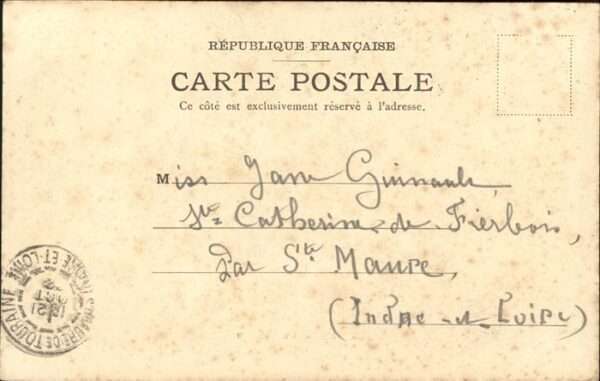 RÉPUBLIQUE FRANÇAISE
CARTE POSTALE
Ce côté est exclusivement réservé à l'adresse.
Miss Jane Guinault,
Ste Catherine de Fierbois,
Par Ste Maure,
(Indre-et-Loire)
STE MAURE DE TOURAINE
(INDRE-ET-LOIRE)
OCT